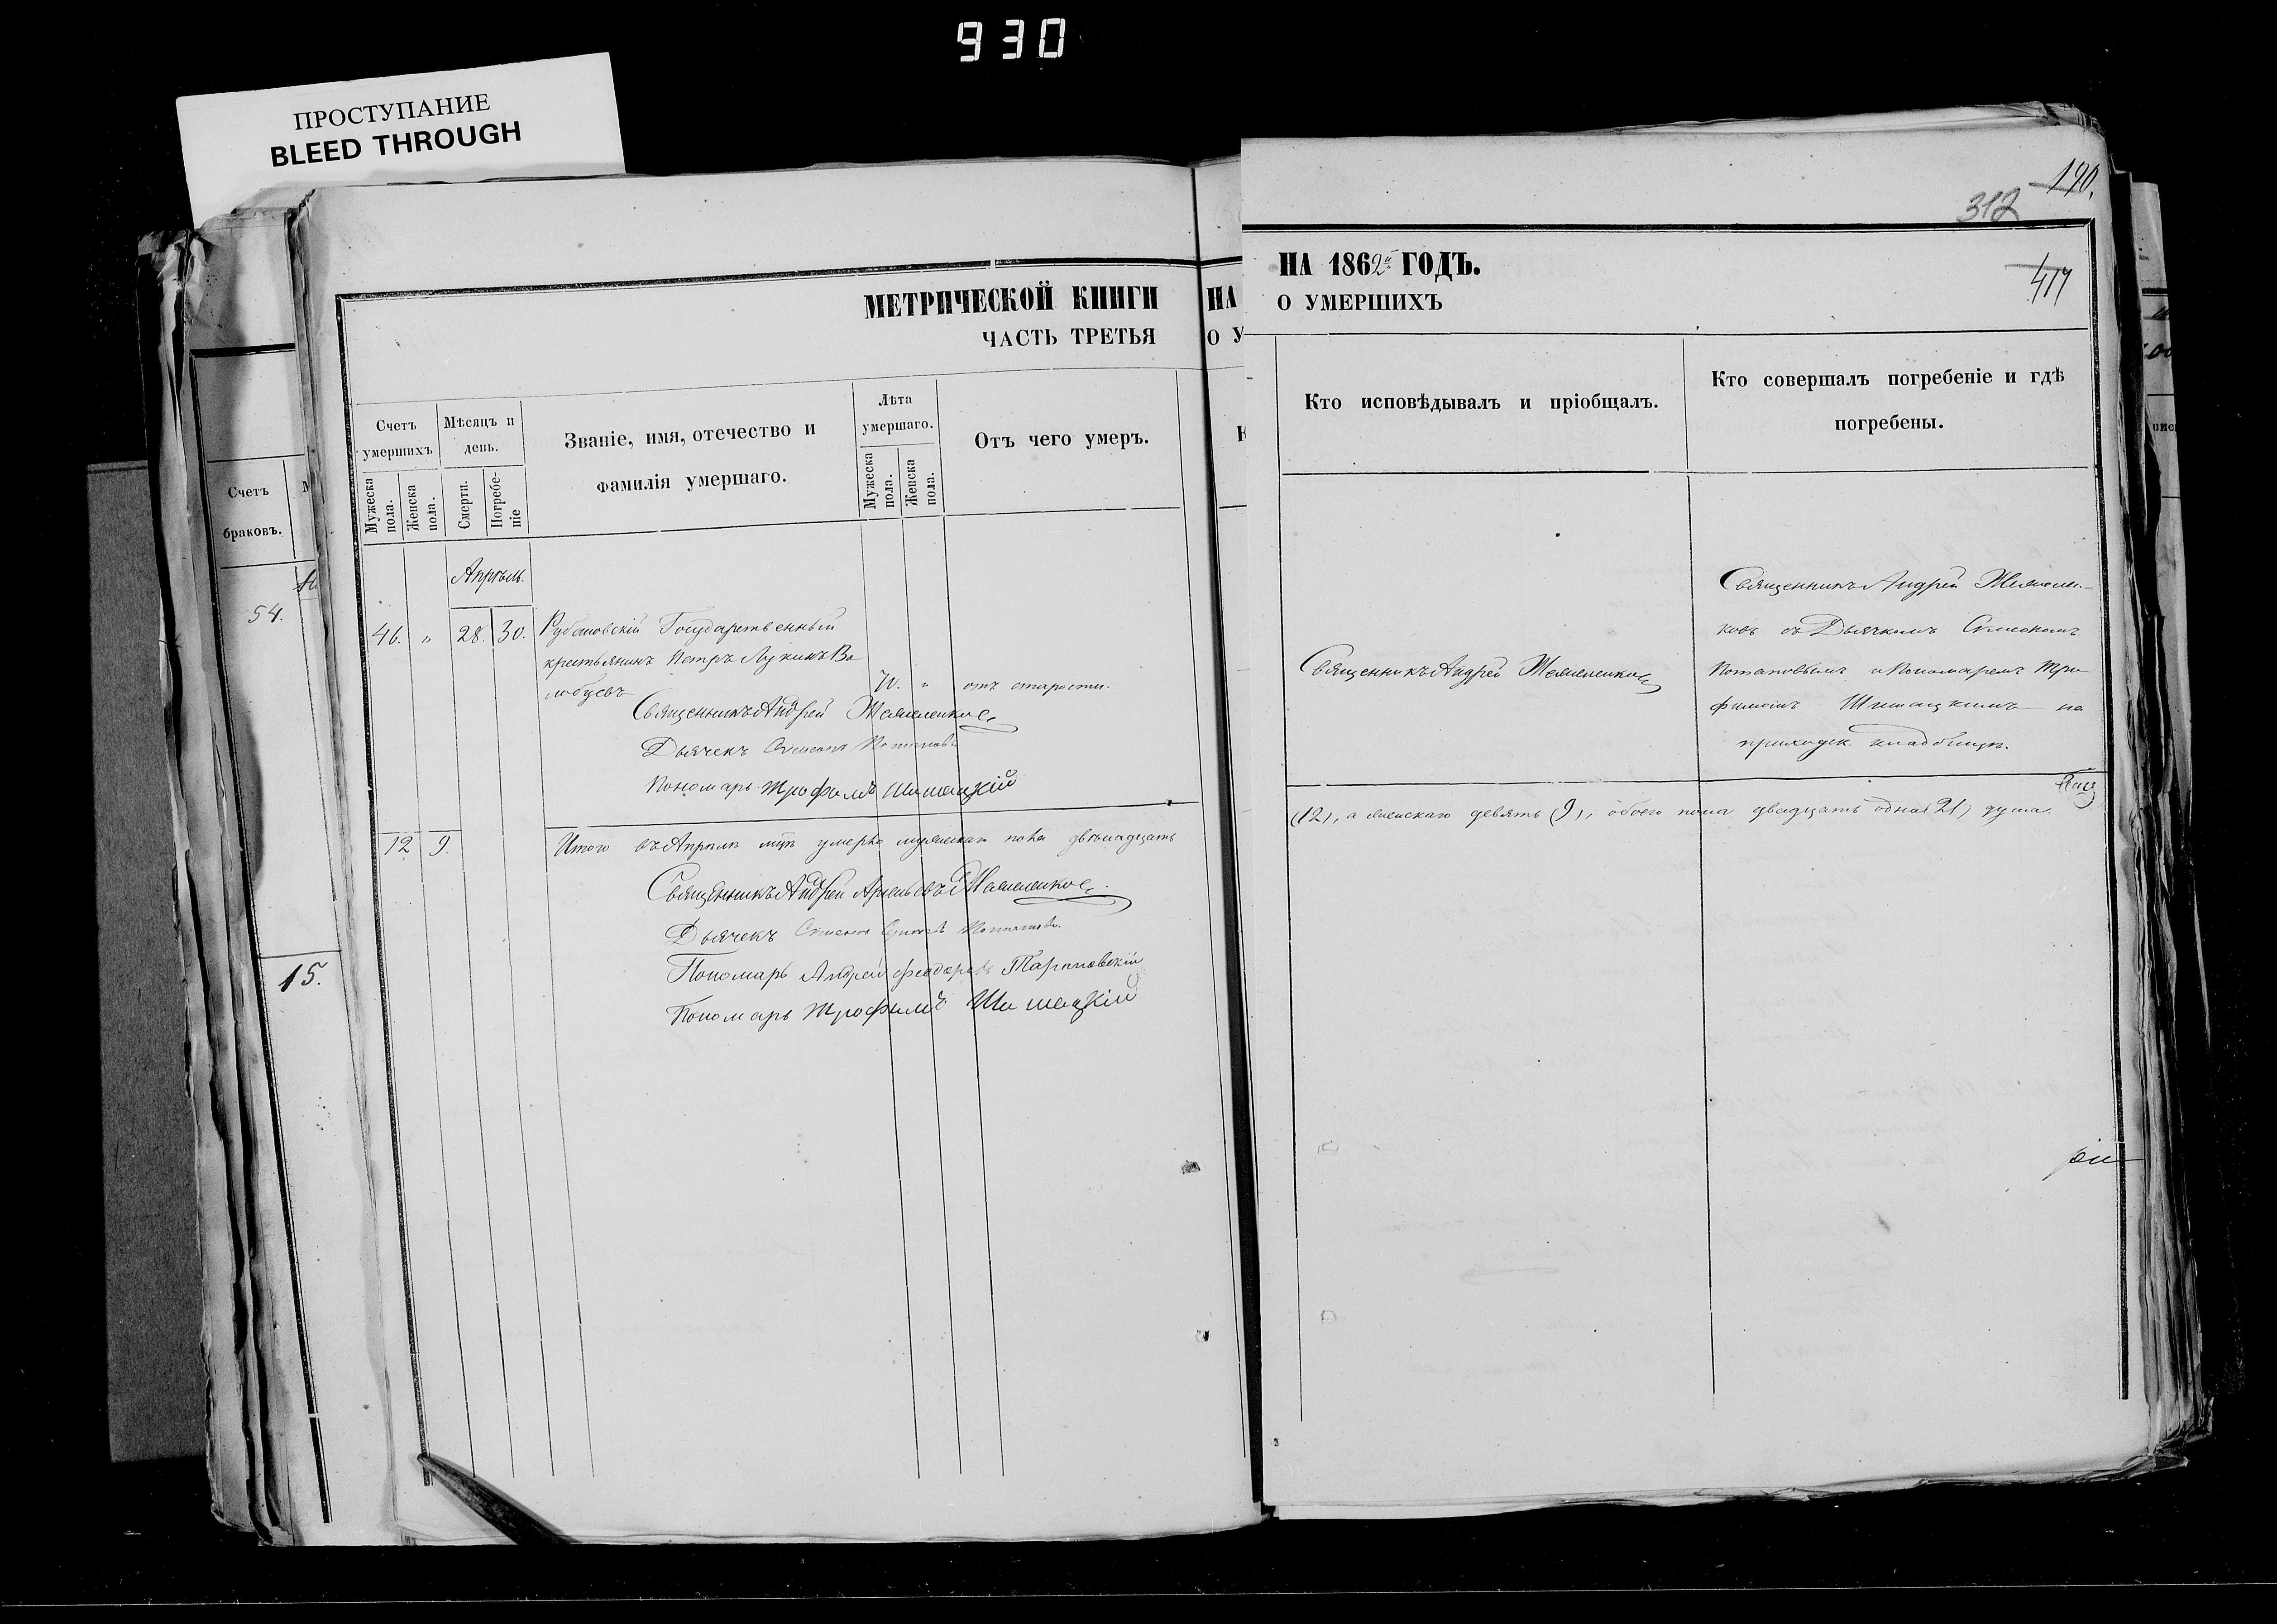 930
ПРОСТУПАНИЕ
BLEED THROUGH
Счетъ
браковъ.
54.
15.
МЕТРИЧЕСКОЙ КНИГИ
ЧАСТЬ ТРЕТЬЯ
Счетъ
умершихъ
Мужеска
пола.
Женска
пола.
Мѣсяцъ и
день.
Смерти.
Погребе-
ніе
Званіе, имя, отечество и
фамилія умершаго.
Лѣта
умершаго.
Мужеска
пола.
Женска
пола.
Отъ чего умеръ.
Апрѣль.
46. „ 28. 30. Государственный
крестьянинъ Петръ Лукинъ Во
любуевъ 70. „ отъ старости.
Священникъ Андрей
Дьячекъ Симеонъ Потаповъ
Пономарь Трофимъ Шишацкій
12 9. Итого въ Апрѣлѣ мцѣ умерло мужескаго пола двѣнадцать
Священникъ Андрей
Дьячекъ Симеонъ Потаповъ.
Пономарь Андрей Феодоровъ Тарановскій
Пономарь Трофимъ Шишацкій
НА
О У
190.
312
НА 1862й ГОДЪ.
О УМЕРШИХЪ
417
Кто исповѣдывалъ и пріобщалъ.
Кто совершалъ погребеніе и гдѣ
погребены.
Священникъ Андрей
Священникъ Андрей
ковъ съ Дьячкомъ Симеономъ
Потаповымъ и Пономаремъ Тро
фимомъ Шишацкимъ на
приходск. кладбищѣ.
(12), а женскаго девять (9), обоего пола двадцать одна (21) душа.